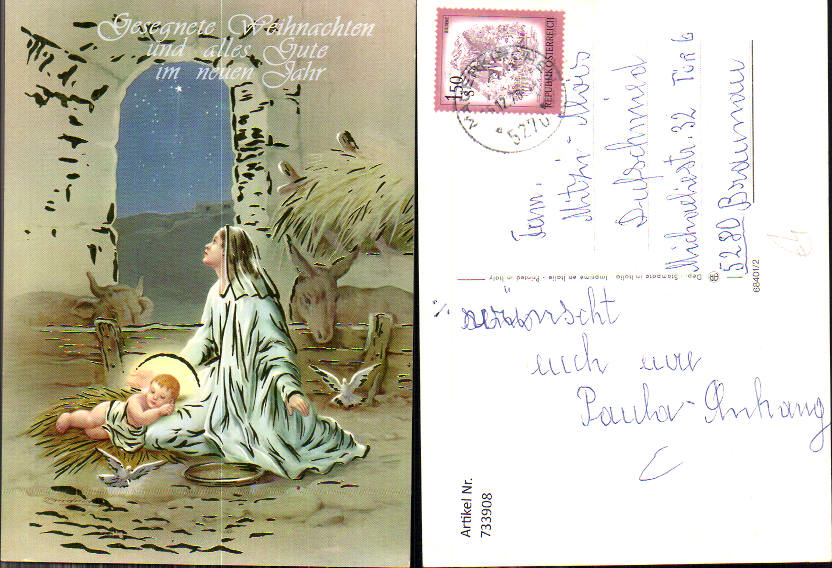 Gesegnete Weihnachten
und alles Gute
im neuen Jahr
1,50
S
REPUBLIK ÖSTERREICH
5270
Fam.
Mitzi Alois
Aufschmied
Michaelistr. 32 Tür 6
5280 Braunau
Dep. - Stampato in Italia - Imprimé en Italie - Printed in Italy
68401/2
wünscht
euch eure
Paula-Anhang
Artikel Nr.
733908